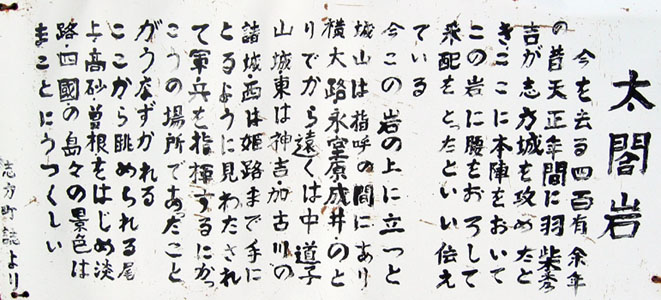 太閤岩
今を去る四百有余年
の昔天正年間に羽柴秀
吉が志方城を攻めたと
きここに本陣をおいて
この岩に腰をおろして
采配をとったといい伝え
ている
今この岩の上に立つと
城山は指呼の間にあり
横大路永室原成井のと
りでから遠くは中道子
山城東は神吉加古川の
諸城・西は姫路まで手に
とるように見わたされ
て軍兵を指揮するにかっ
こうの場所であったこと
がうなずかれる
ここから眺められる尾
上・高砂・曽根をはじめ淡
路・四國の島々の景色は
まことにうつくしい
志方町誌より